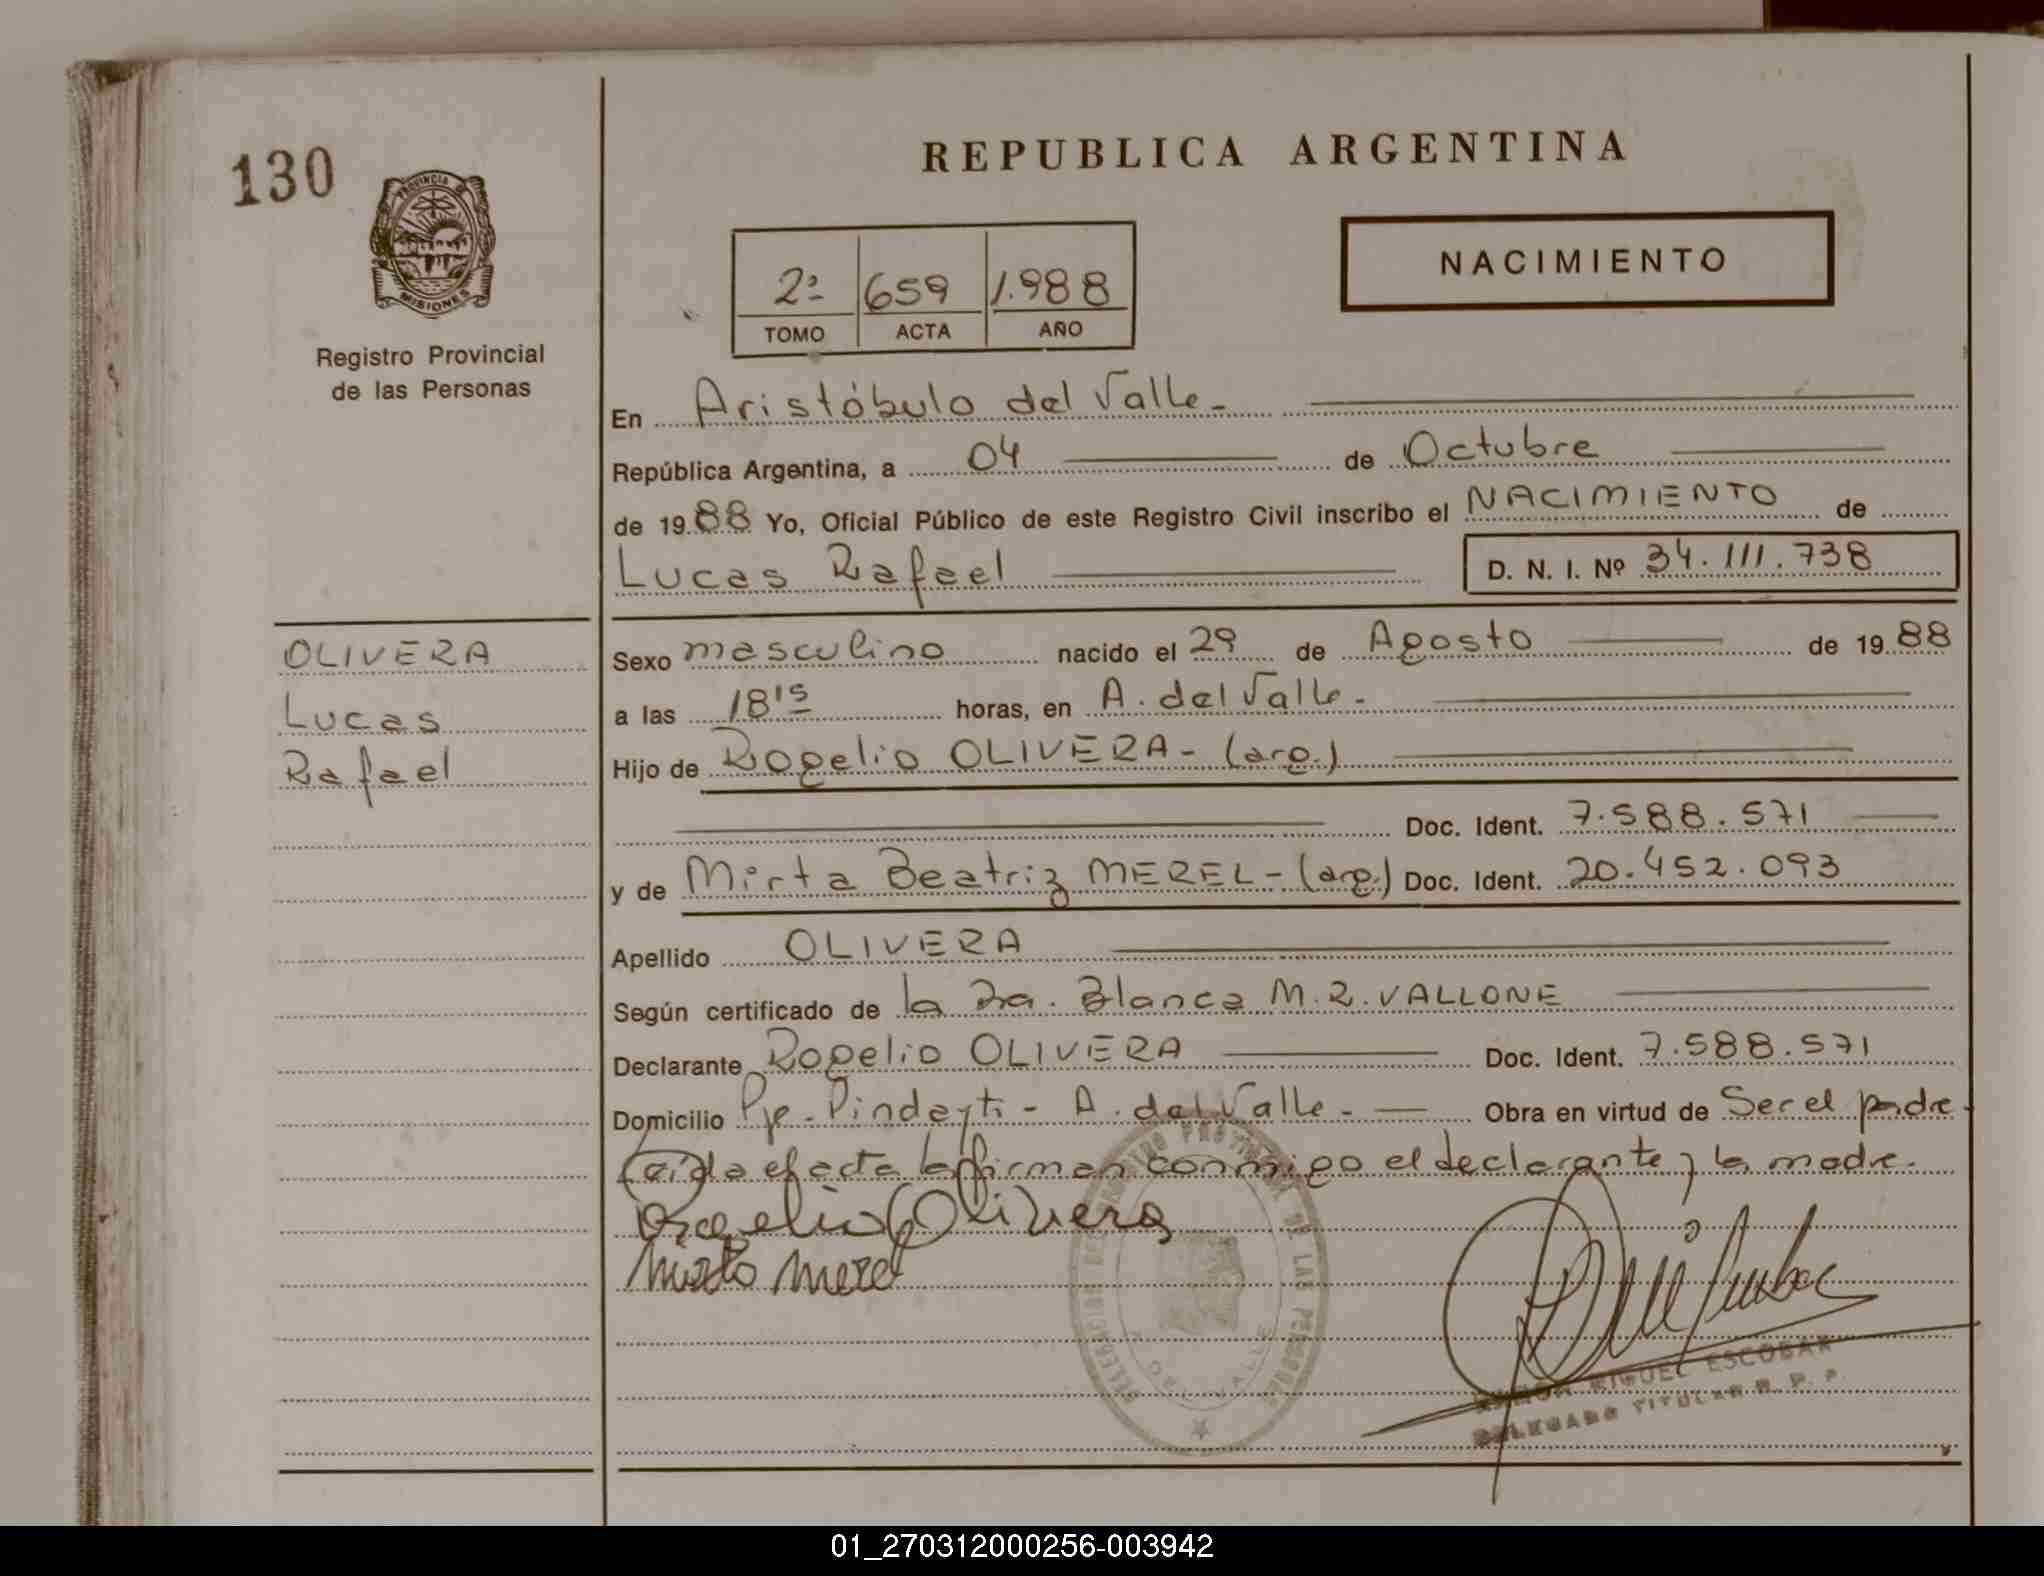 130
PROVINCIA DE
MISIONES
Registro Provincial
de las Personas
REPUBLICA ARGENTINA
2º 659 1.988
TOMO ACTA AÑO
NACIMIENTO
En Aristóbulo del Valle.-
República Argentina, a 04 de Octubre
de 1988 Yo, Oficial Público de este Registro Civil inscribo el NACIMIENTO de
Lucas Rafael D. N. I. Nº 34.111.738
OLIVERA
Lucas
Rafael
Sexo masculino nacido el 29 de Agosto de 1988
a las 18'15 horas, en A. del Valle.-
Hijo de Rogelio OLIVERA - (arg.)
Doc. Ident. 7.588.571
y de Mirta Beatriz MEREL - (arg.) Doc. Ident. 20.452.093
Apellido OLIVERA
Según certificado de la Dra. Blanca M.R. VALLONE
Declarante Rogelio OLIVERA Doc. Ident. 7.588.571
Domicilio Pje. Pindayti - A. del Valle.- Obra en virtud de Ser el padre.
Leída el acta la firman conmigo el declarante y la madre.
Rogelio Olivera
Mirta Merel
DELEGACION DEL REGISTRO PROVINCIAL DE LAS PERSONAS
A. DEL VALLE
RAMON MIGUEL ESCOBAR
DELEGADO TITULAR R. P. P.
01_270312000256-003942